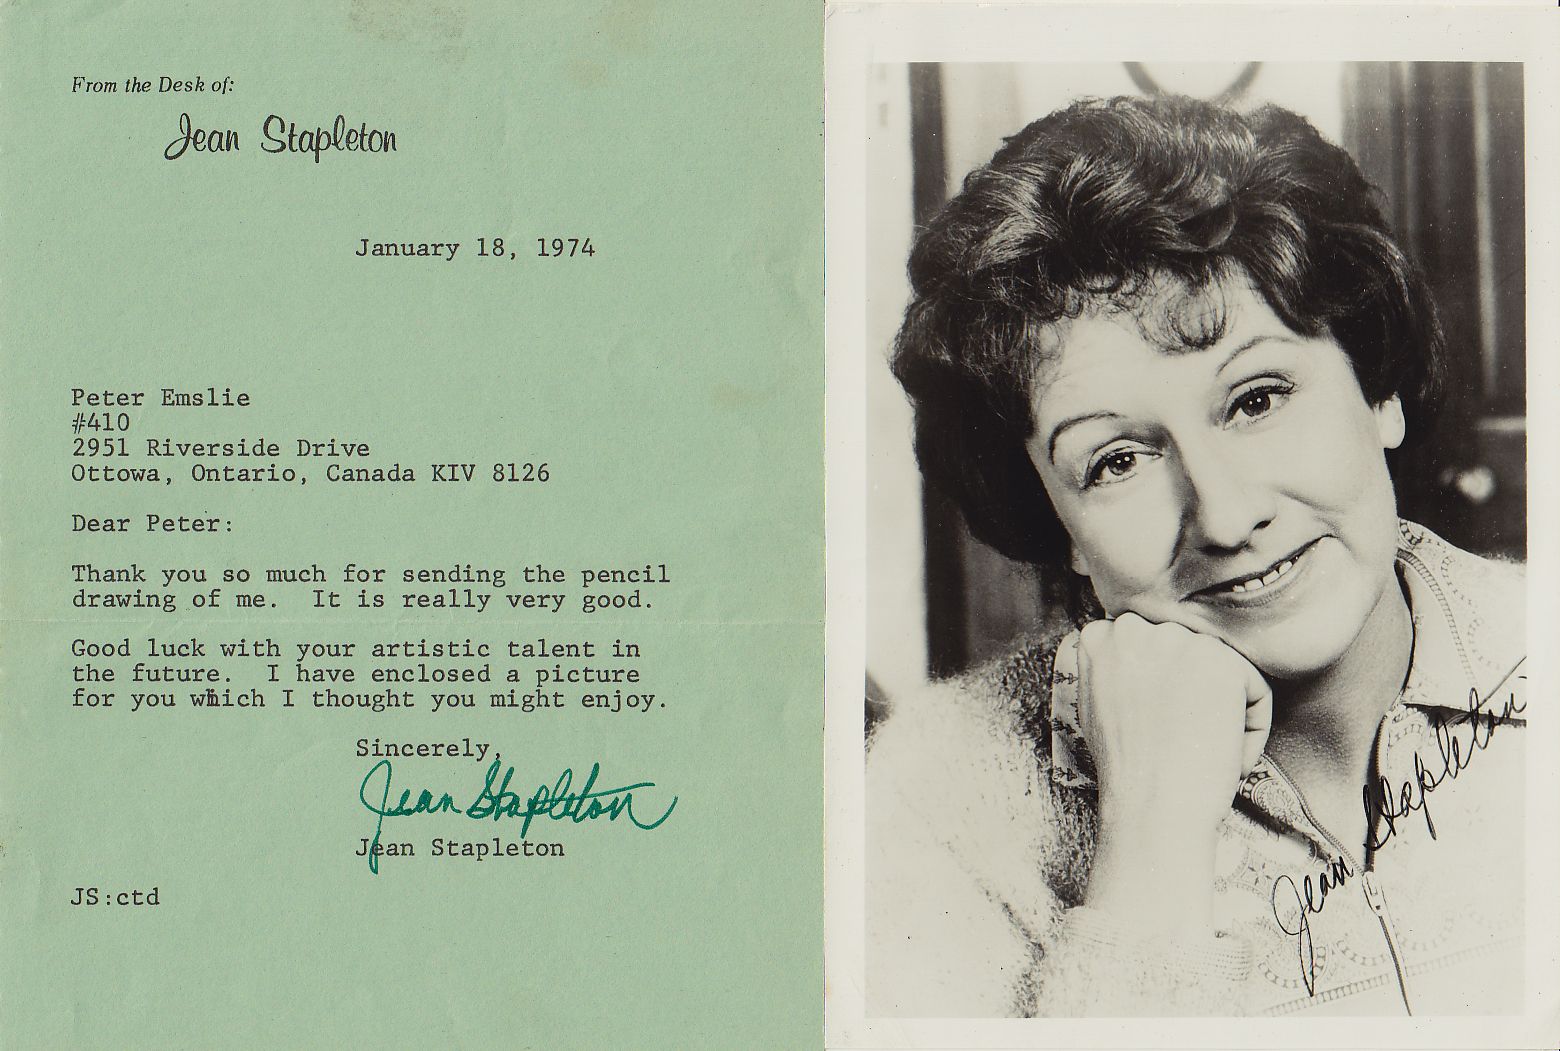 From the Desk of:
Jean Stapleton
January 18, 1974
Peter Emslie
#410
2951 Riverside Drive
Ottowa, Ontario, Canada KIV 8126
Dear Peter:
Thank you so much for sending the pencil
drawing of me.  It is really very good.
Good luck with your artistic talent in
the future.  I have enclosed a picture
for you which I thought you might enjoy.
Sincerely,
Jean Stapleton
Jean Stapleton
JS:ctd
Jean Stapleton